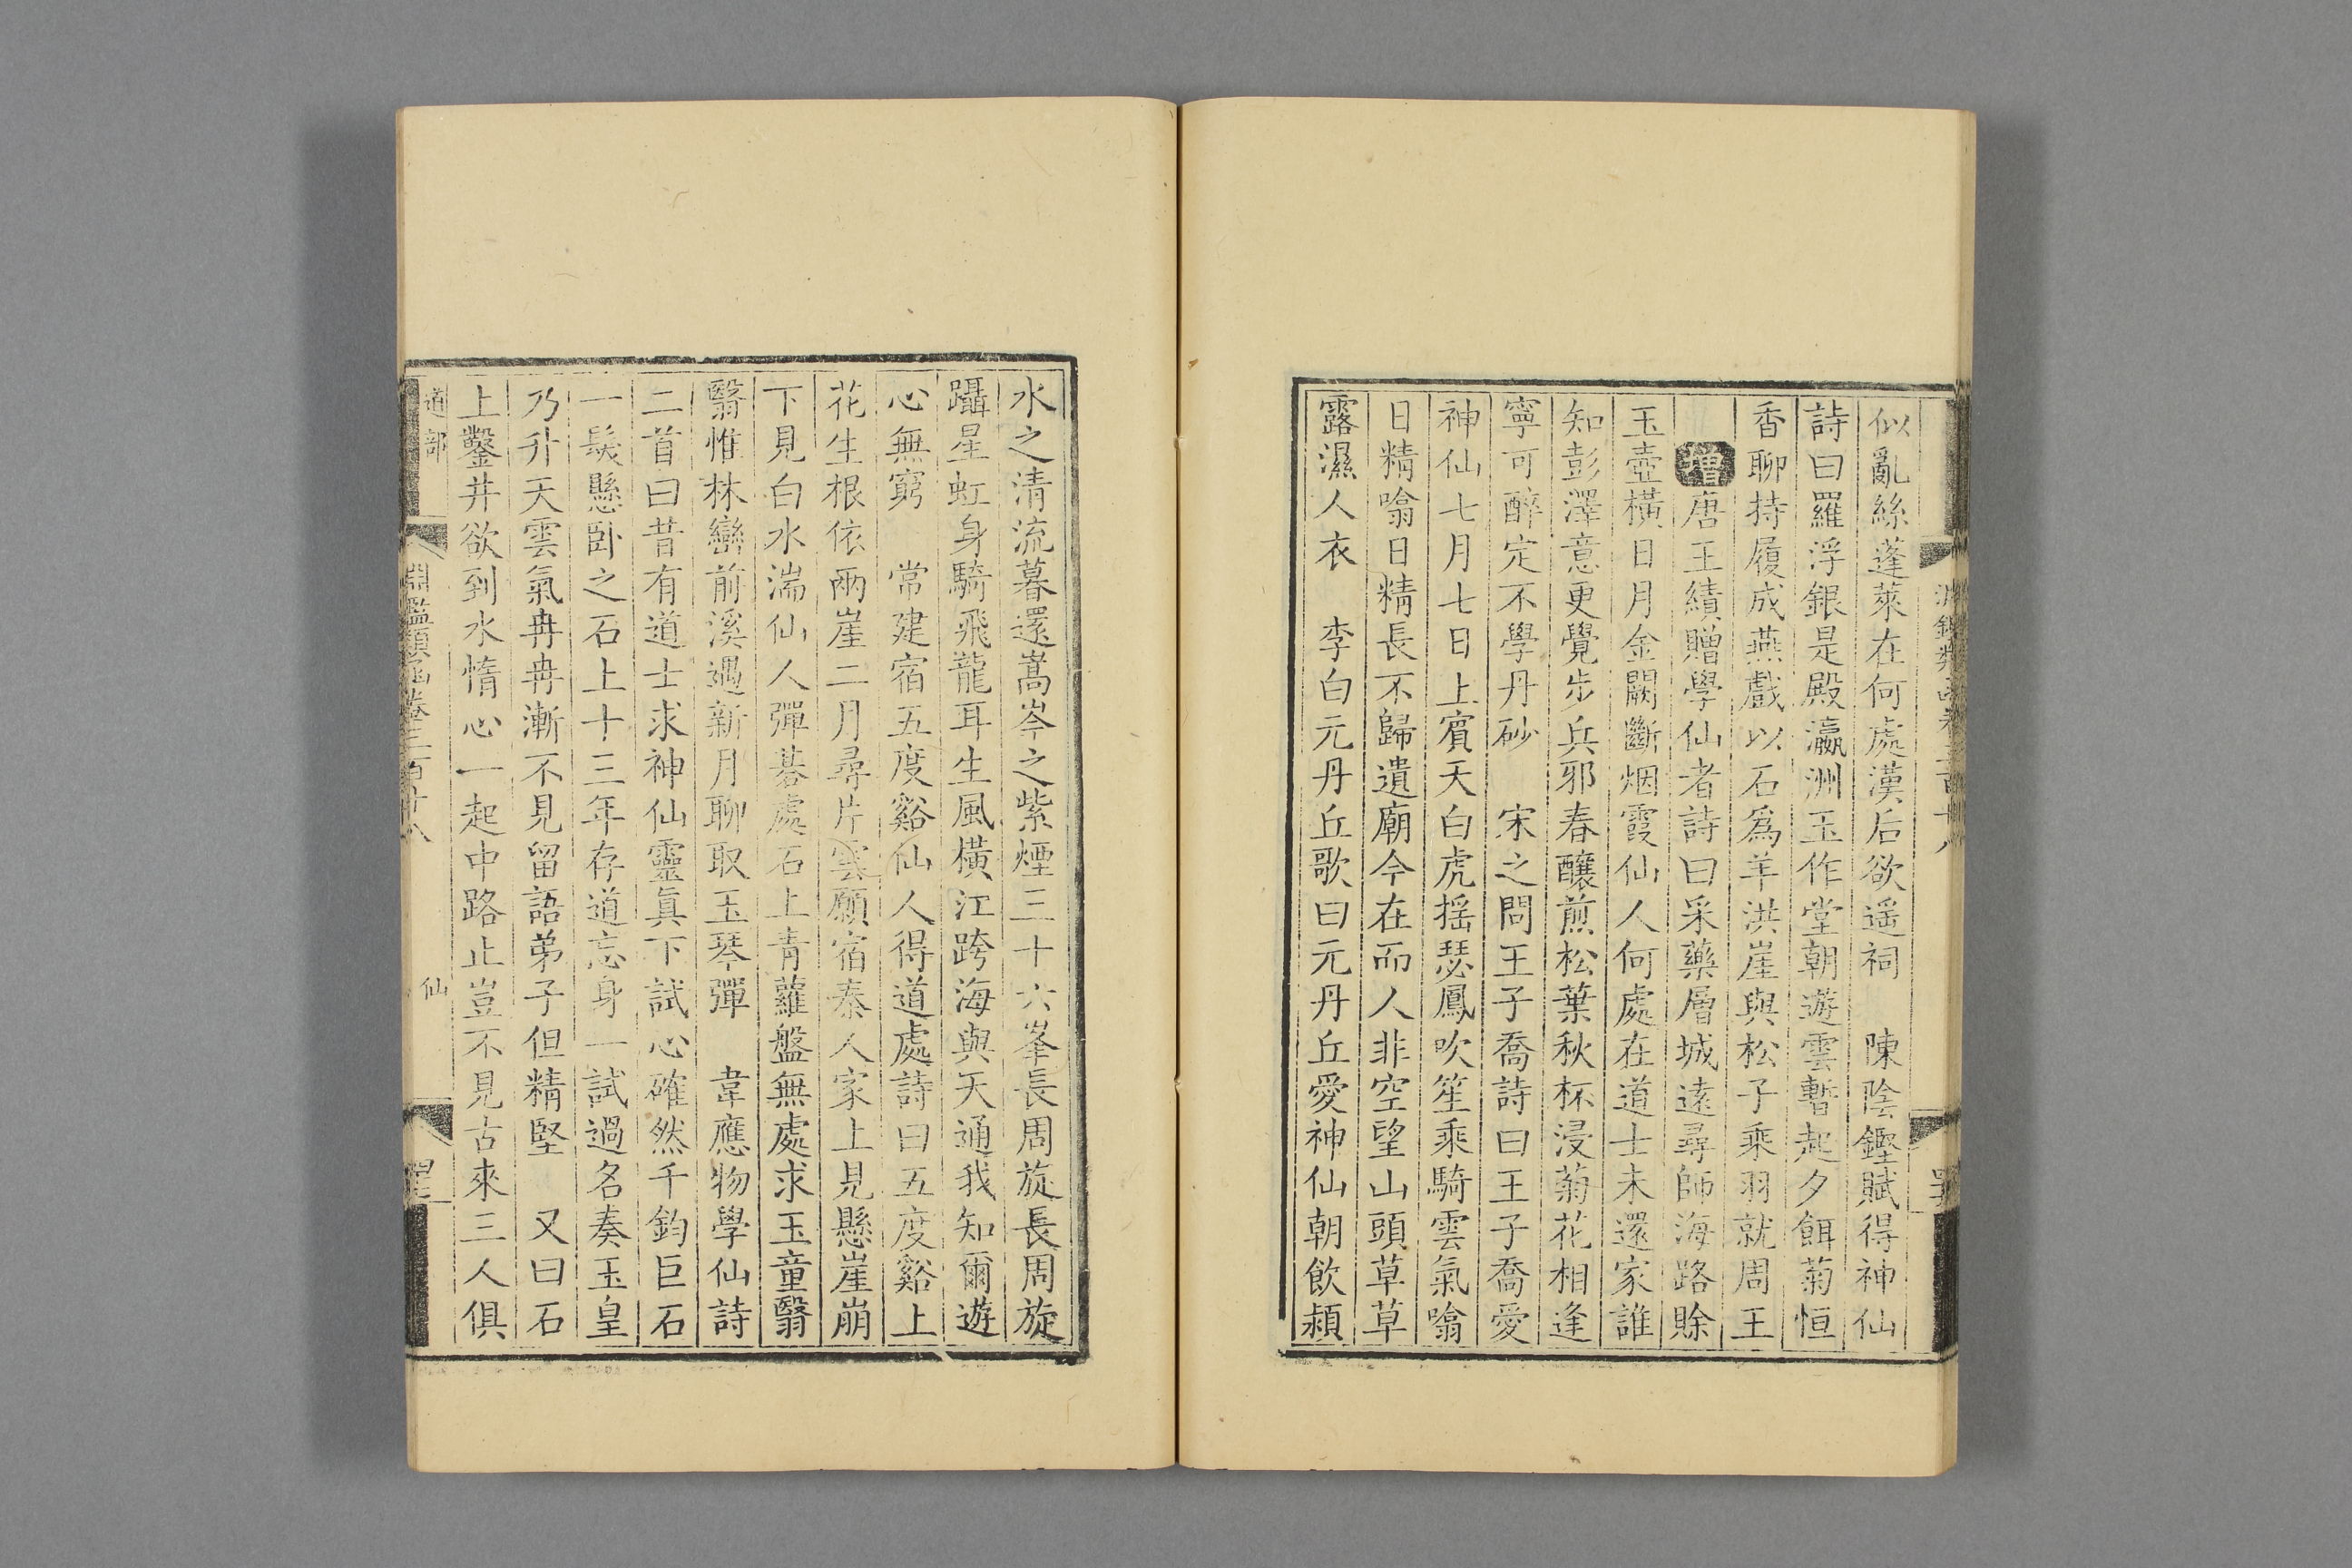 似亂絲蓬萊在何處漢后欲遥祠　陳陰鏗賦得神仙
詩曰羅浮銀是殿瀛洲玉作堂朝遊雲暫起夕餌菊恒
香聊持履成燕戲以石爲羊洪崖與松子乘羽就周王
增唐王績贈學仙者詩曰采藥層城遠尋師海路賒
玉壺横日月金闕斷烟霞仙人何處在道士未還家誰
知彭澤意更覺步兵邪春釀煎松葉秋杯浸菊花相逢
寧可醉定不學丹砂　宋之問王子喬詩曰王子喬愛
神仙七月七日上賓天白虎摇瑟鳳吹笙乘騎雲氣噏
日精噏日精長不歸遺廟今在而人非空望山頭草草
露濕人衣　李白元丹丘歌曰元丹丘愛神仙朝飲潁
水之清流暮還嵩岑之紫煙三十六峯長周旋長周旋
躡星虹身騎飛龍耳生風橫江跨海與天通我知爾遊
心無窮　常建宿五度谿仙人得道處詩曰五度谿上
花生根依兩崖二月尋片雲願宿秦人家上見懸崖崩
下見白水湍仙人彈碁處石上青蘿盤無處求玉童翳
翳惟林巒前溪遇新月聊取玉琴彈　韋應物學仙詩
二首曰昔有道士求神仙靈眞下試心確然千鈞巨石
一髮懸卧之石上十三年存道忘身一試過名奏玉皇
乃升天雲氣冉冉漸不見留語弟子但精堅　又曰石
上鑿井欲到水惰心一起中路止豈不見古來三人俱
道部　淵鑑類函卷三百十八　仙